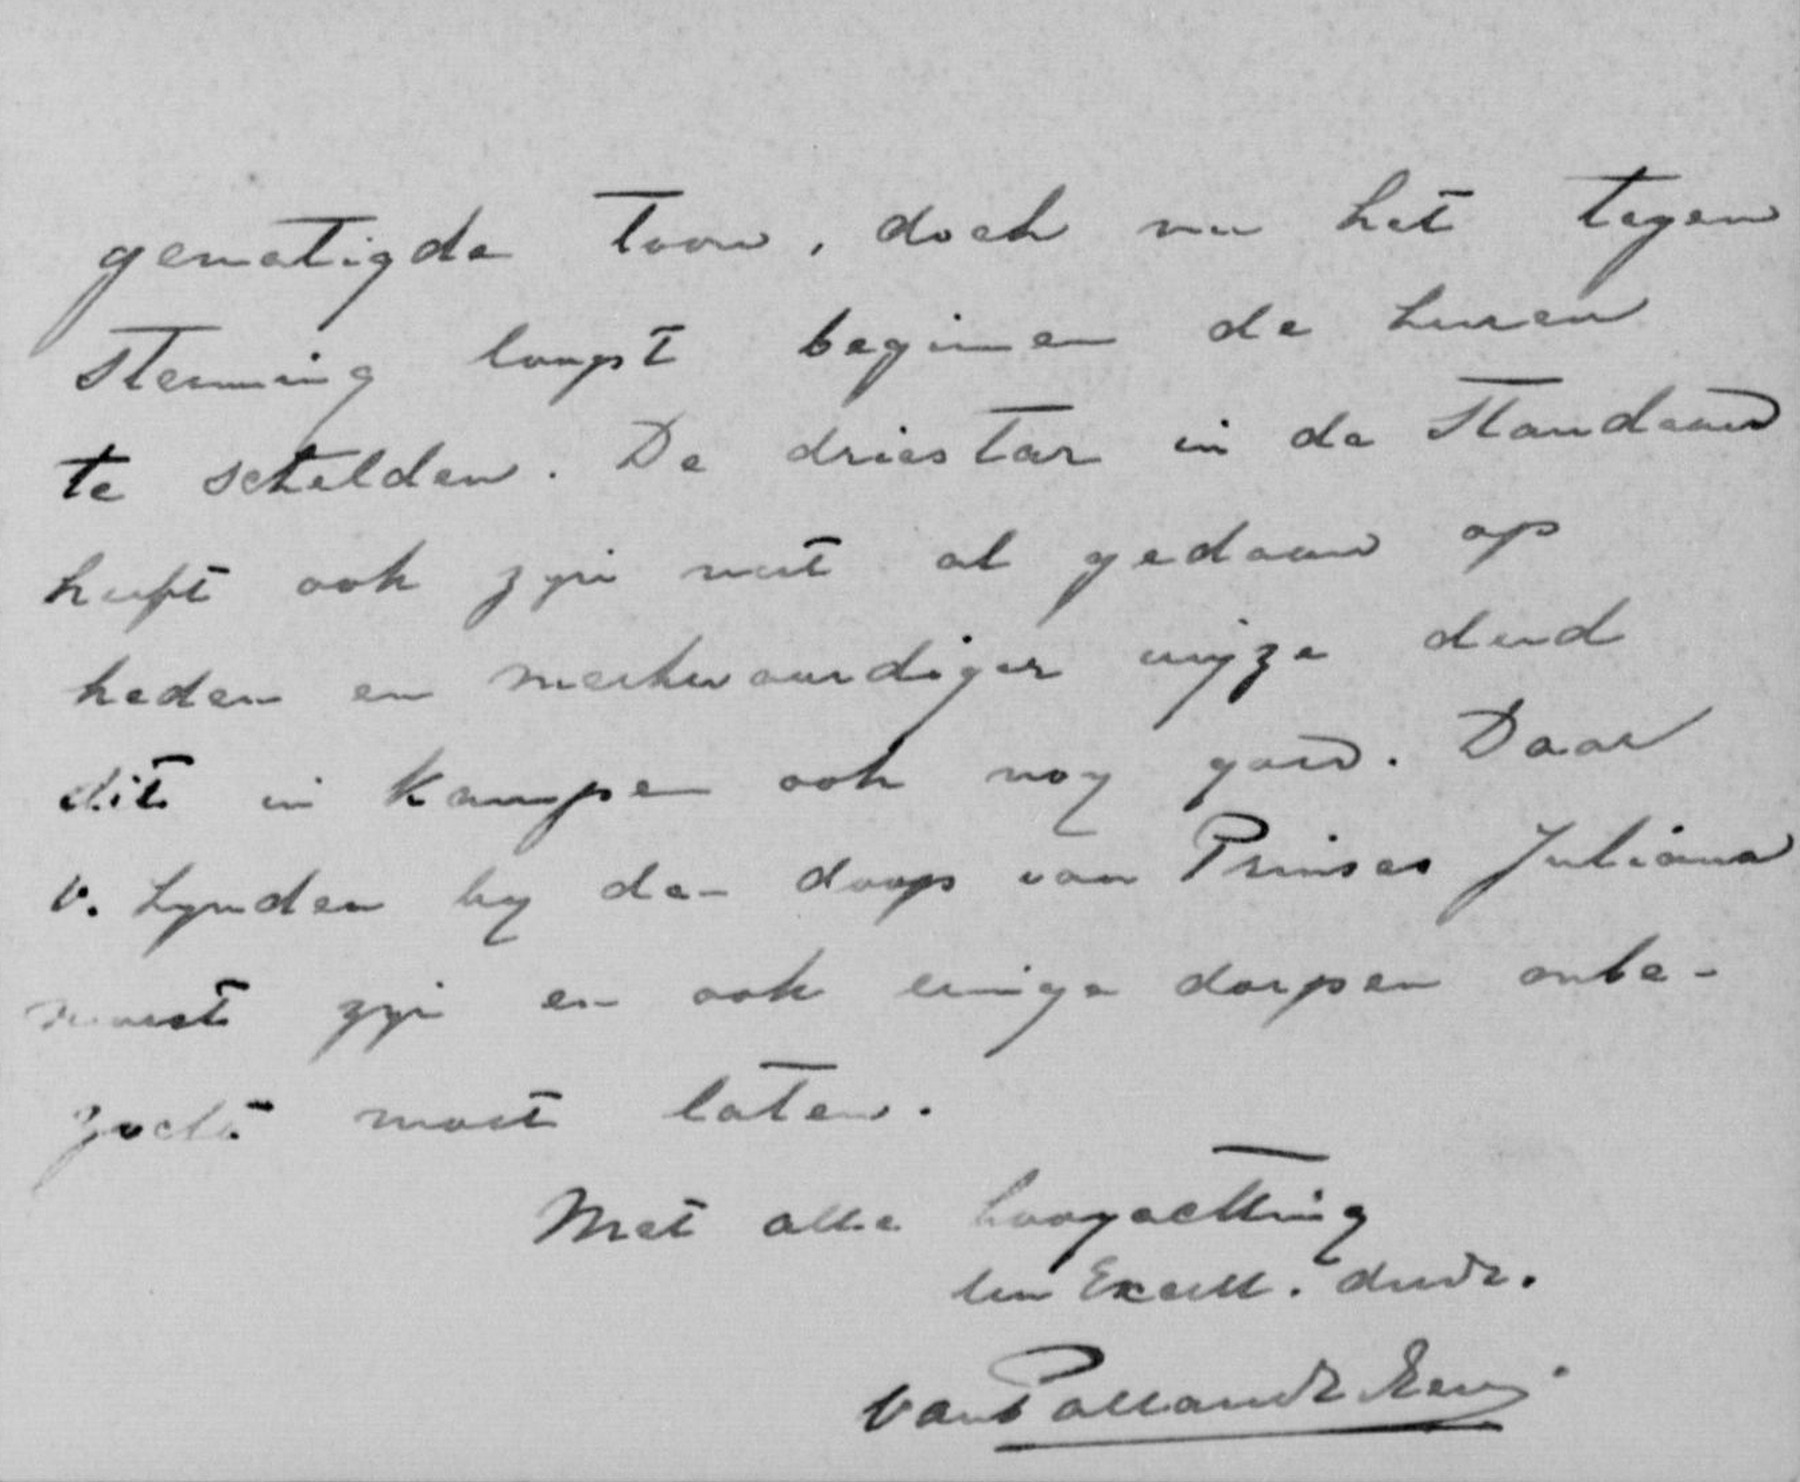 gematigde toon, doch nu het tegen
stemming loopt beginnen de heeren
te schelden. De driestar in de Standaard
heeft ook zyn nut al gedaan op
heden en merkwaardiger wijze deed
dit in Kampen ook nog goed. Daar
v. Lynden by de doop van Prinses Juliana
moest zyn en ook eenige dorpen onbe-
zocht moest laten.
Met alle hoogachting
Uw Excell. dwdr.
van Pallandt